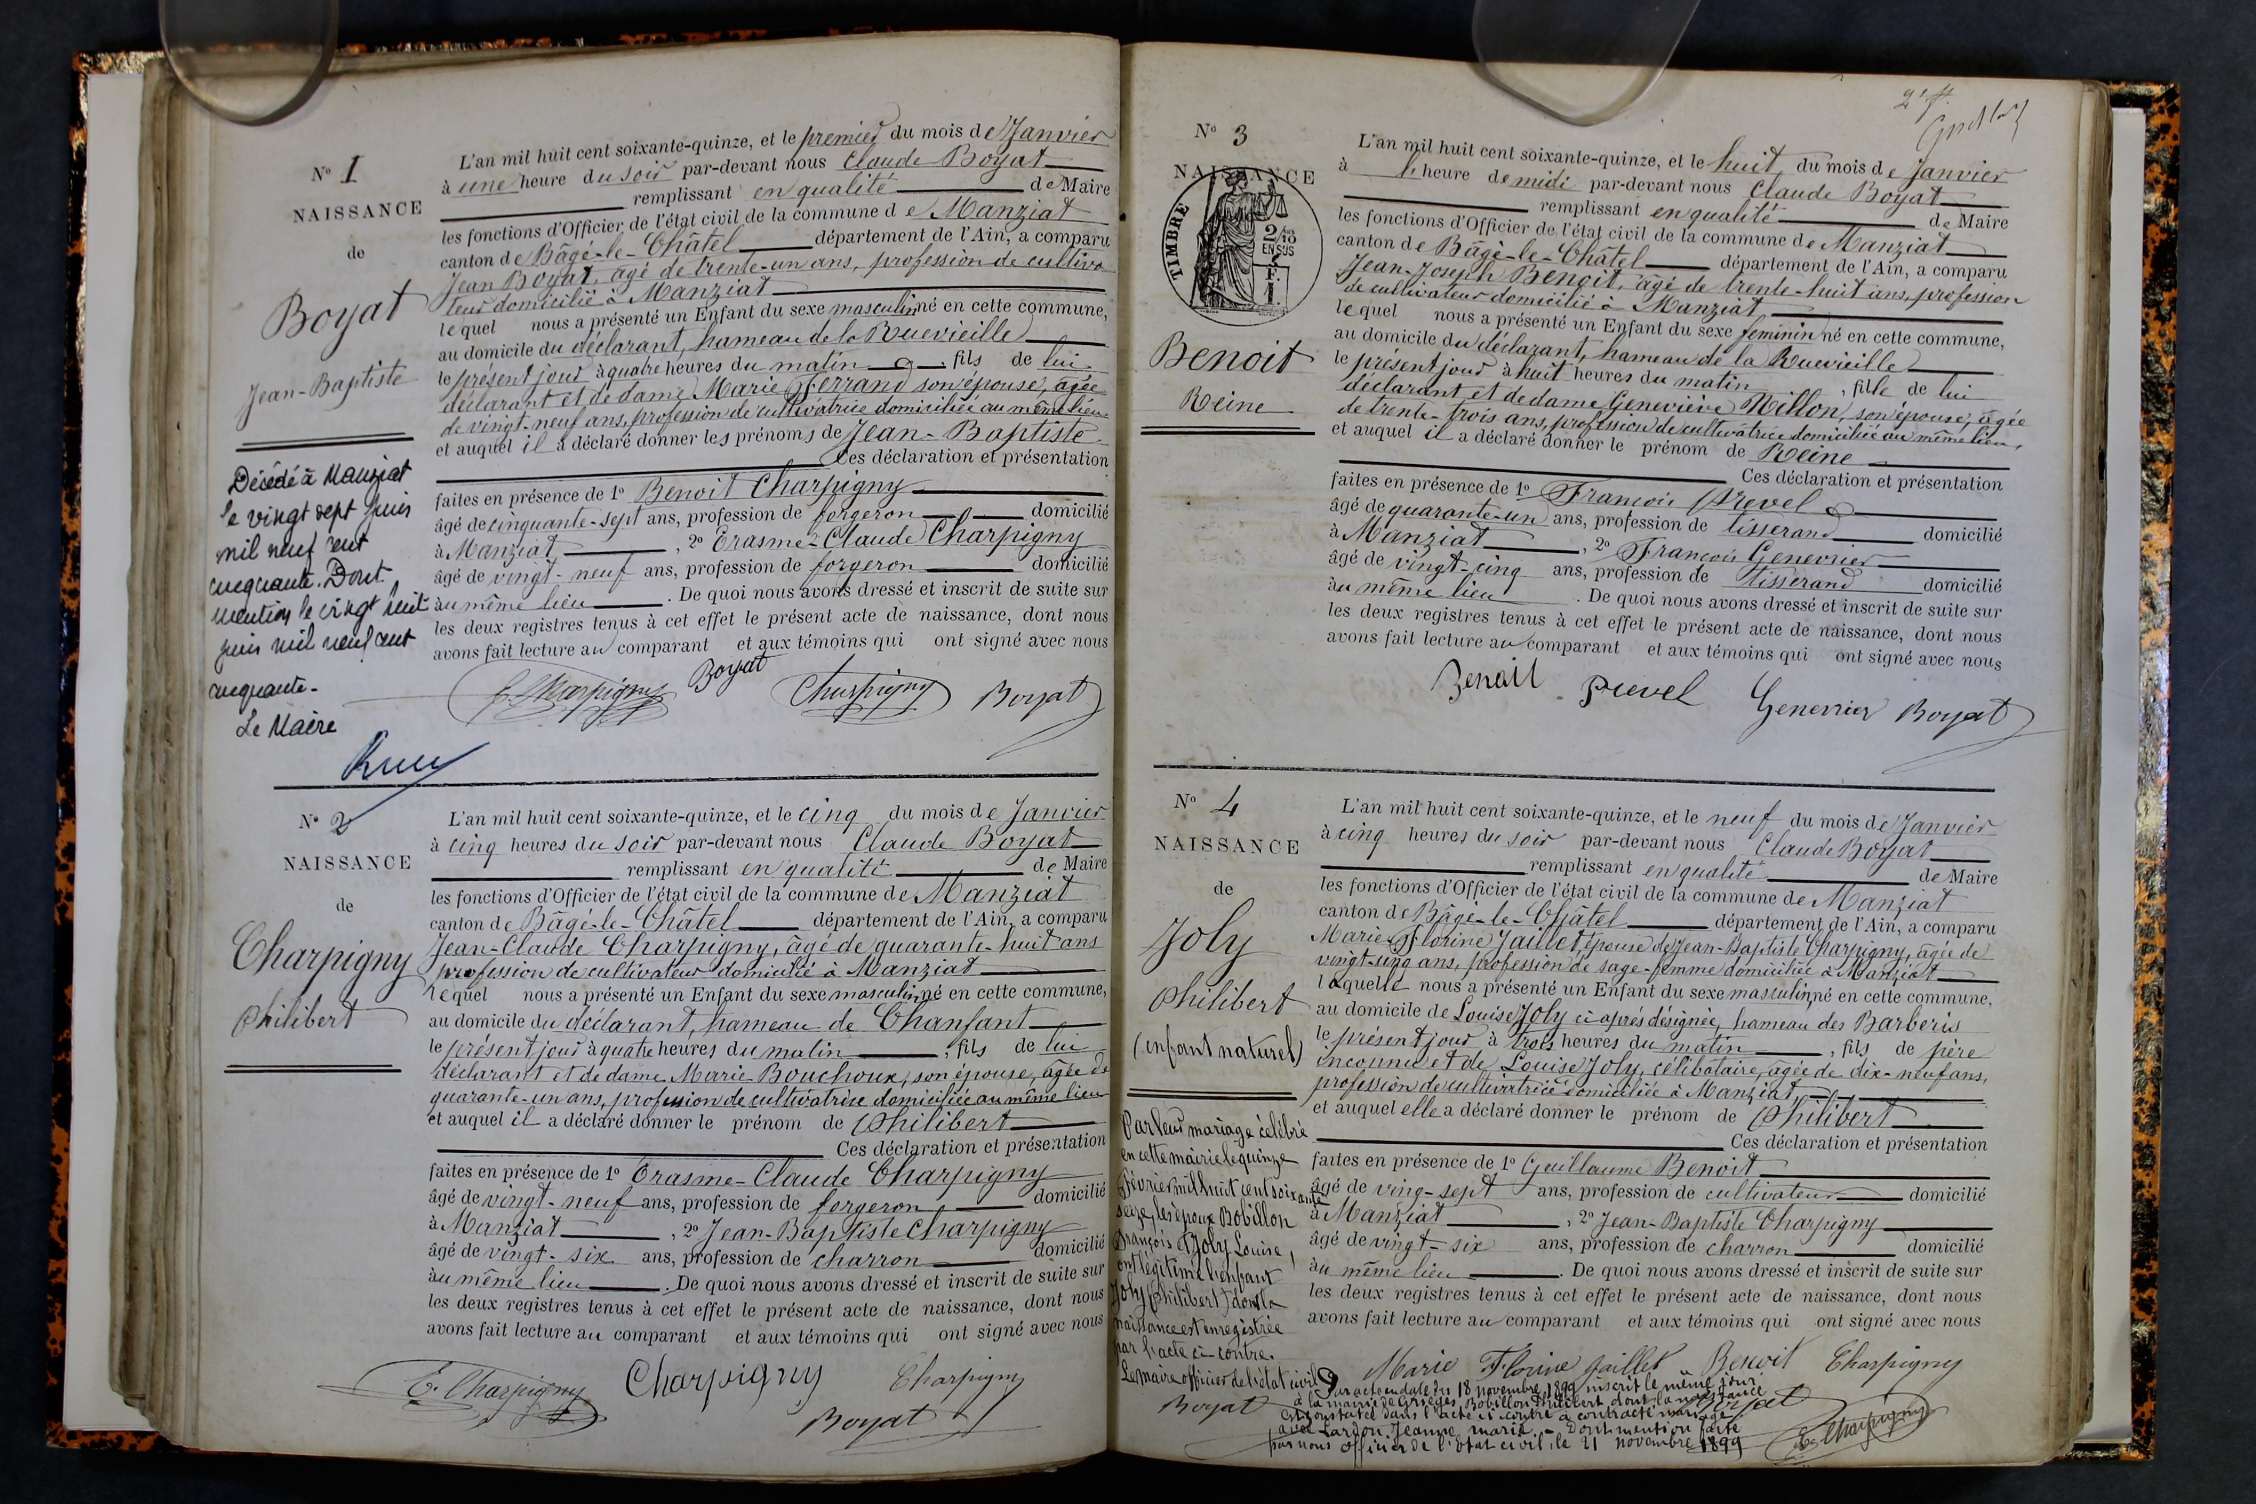 N° 1
NAISSANCE
de
Boyat
Jean-Baptiste
Décédé à Manziat
le vingt sept juin
mil neuf cent
cinquante. Dont
mention le vingt huit
juin mil neuf cent
cinquante.
Le Maire
L'an mil huit cent soixante-quinze, et le premier du mois de Janvier
à une heure du soir par-devant nous Claude Boyat
remplissant en qualité de Maire
les fonctions d'Officier de l'état civil de la commune de Manziat
canton de Bâgé-le-Châtel département de l'Ain, a comparu
Jean Boyat, âgé de trente-un ans, profession de cultiva
teur domicilié à Manziat
lequel nous a présenté un Enfant du sexe masculin né en cette commune,
au domicile du déclarant, hameau de la Ruevieille
le présent jour à quatre heures du matin, fils de lui
déclarant et de dame Marie Ferrand son épouse, âgée
de vingt-neuf ans, profession de cultivatrice domiciliée au même lieu
et auquel il a déclaré donner les prénoms de Jean-Baptiste
Ces déclaration et présentation
faites en présence de 1° Benoit Charpigny
âgé de cinquante-sept ans, profession de forgeron domicilié
à Manziat, 2° Erasme-Claude Charpigny
âgé de vingt-neuf ans, profession de forgeron domicilié
au même lieu. De quoi nous avons dressé et inscrit de suite sur
les deux registres tenus à cet effet le présent acte de naissance, dont nous
avons fait lecture au comparant et aux témoins qui ont signé avec nous
E. Charpigny Boyat Charpigny Boyat
N° 2
NAISSANCE
de
Charpigny
Philibert
L'an mil huit cent soixante-quinze, et le cinq du mois de Janvier
à cinq heures du soir par-devant nous Claude Boyat
remplissant en qualité de Maire
les fonctions d'Officier de l'état civil de la commune de Manziat
canton de Bâgé-le-Châtel département de l'Ain, a comparu
Jean-Claude Charpigny, âgé de quarante-huit ans
profession de cultivateur domicilié à Manziat
lequel nous a présenté un Enfant du sexe masculin né en cette commune,
au domicile du déclarant, hameau de Chanfant
le présent jour à quatre heures du matin, fils de lui
déclarant et de dame Marie Bouchoux, son épouse, âgée de
quarante-un ans, profession de cultivatrice domiciliée au même lieu
et auquel il a déclaré donner le prénom de Philibert
Ces déclaration et présentation
faites en présence de 1° Erasme-Claude Charpigny
âgé de vingt-neuf ans, profession de forgeron domicilié
à Manziat, 2° Jean-Baptiste Charpigny
âgé de vingt-six ans, profession de charron domicilié
au même lieu. De quoi nous avons dressé et inscrit de suite sur
les deux registres tenus à cet effet le présent acte de naissance, dont nous
avons fait lecture au comparant et aux témoins qui ont signé avec nous
E. Charpigny Charpigny Charpigny
Boyat
N° 3
NAISSANCE
TIMBRE
2/10
EN SUS
Benoit
Reine
L'an mil huit cent soixante-quinze, et le huit du mois de Janvier
à heure de midi par-devant nous Claude Boyat
remplissant en qualité de Maire
les fonctions d'Officier de l'état civil de la commune de Manziat
canton de Bâgé-le-Châtel département de l'Ain, a comparu
Jean-Joseph Benoit, âgé de trente-huit ans, profession
de cultivateur domicilié à Manziat
lequel nous a présenté un Enfant du sexe féminin né en cette commune,
au domicile du déclarant, hameau de la Ruevieille
le présent jour à huit heures du matin, fille de lui
déclarant et de dame Geneviève Nillon, son épouse, âgée
de trente-trois ans, profession de cultivatrice domiciliée au même lieu,
et auquel il a déclaré donner le prénom de Reine
Ces déclaration et présentation
faites en présence de 1° François Prevel
âgé de quarante-un ans, profession de tisserand domicilié
à Manziat, 2° François Genevrier
âgé de vingt-cinq ans, profession de tisserand domicilié
au même lieu. De quoi nous avons dressé et inscrit de suite sur
les deux registres tenus à cet effet le présent acte de naissance, dont nous
avons fait lecture au comparant et aux témoins qui ont signé avec nous
Benoit Prevel Genevrier Boyat
N° 4
NAISSANCE
de
Joly
Philibert
(enfant naturel)
Par leur mariage célébré
en cette mairie le quinze
février mil huit cent soixante
seize, les époux Bobillon
François et Joly Louise,
ont légitimé l'enfant
Joly (Philibert) dont la
naissance est enregistrée
par l'acte ci-contre.
Le maire officier de l'état civil
Boyat
L'an mil huit cent soixante-quinze, et le neuf du mois de Janvier
à cinq heures du soir par-devant nous Claude Boyat
remplissant en qualité de Maire
les fonctions d'Officier de l'état civil de la commune de Manziat
canton de Bâgé-le-Châtel département de l'Ain, a comparu
Marie-Florine Jaillet, épouse de Jean-Baptiste Charpigny, âgée de
vingt-cinq ans, profession de sage-femme domiciliée à Manziat
laquelle nous a présenté un Enfant du sexe masculin, né en cette commune,
au domicile de Louise Joly ci-après désignée, hameau des Barberis
le présent jour à trois heures du matin, fils de père
inconnu et de Louise Joly, célibataire, âgée de dix-neuf ans,
profession de cultivatrice domiciliée à Manziat,
et auquel elle a déclaré donner le prénom de Philibert
Ces déclaration et présentation
faites en présence de 1° Guillaume Benoit
âgé de ving-sept ans, profession de cultivateur domicilié
à Manziat, 2° Jean-Baptiste Charpigny
âgé de vingt-six ans, profession de charron domicilié
au même lieu. De quoi nous avons dressé et inscrit de suite sur
les deux registres tenus à cet effet le présent acte de naissance, dont nous
avons fait lecture au comparant et aux témoins qui ont signé avec nous
Marie Florine Jaillet Benoit Charpigny
Boyat
E. Charpigny
Par acte en date du 18 novembre 1899 inscrit le même jour
à la mairie de Grièges, Bobillon Philibert dont la naissance
est constatée dans l'acte ci-contre a contracté mariage
avec Lardon Jeanne Marie. Dont mention faite
par nous officier de l'état civil, le 21 novembre 1899